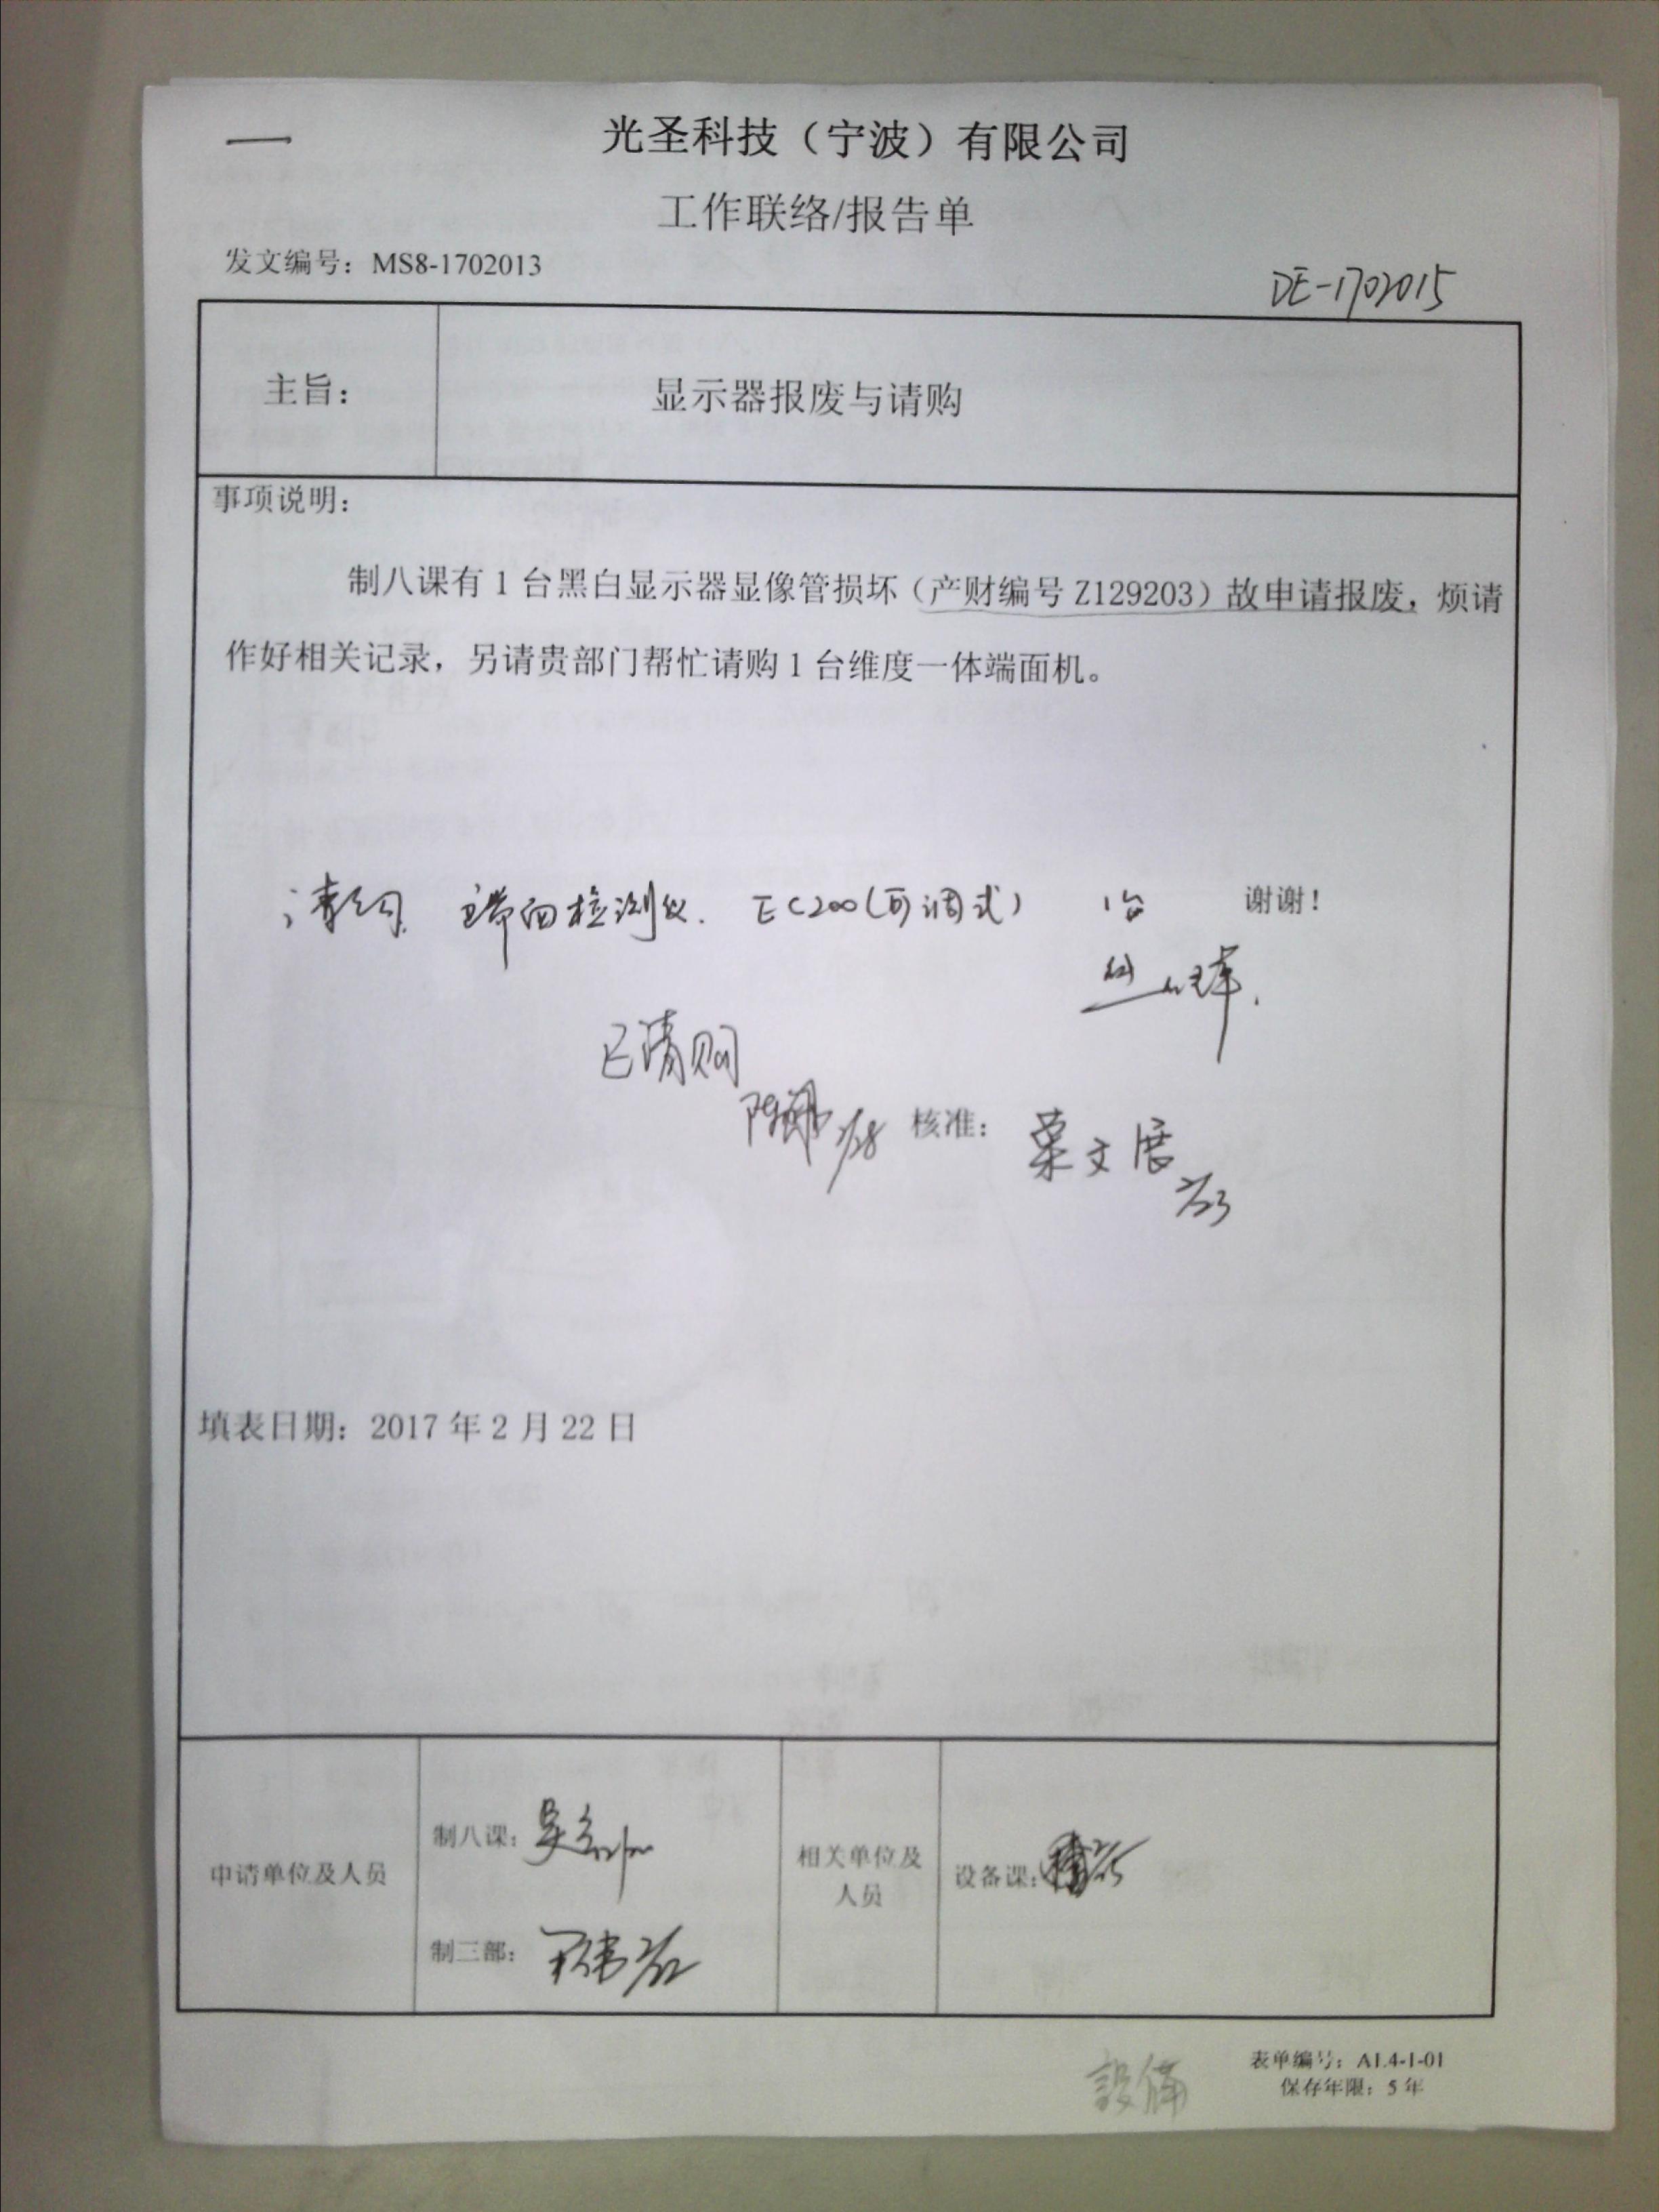 光圣科技（宁波）有限公司
工作联络/报告单
发文编号：MS8-1702013
DE-1702015
主旨：
显示器报废与请购
事项说明：
制八课有1台黑白显示器显像管损坏（产财编号Z129203）故申请报废，烦请
作好相关记录，另请贵部门帮忙请购1台维度一体端面机。
请购 端面检测仪. EC200(可调式) 1台 谢谢！
已请购
2/28 核准：栗文展
2/23
填表日期：2017年2月22日
申请单位及人员
制八课：
制三部： 2/22
相关单位及
人员
设备课：
設備
表单编号：A1.4-1-01
保存年限：5年